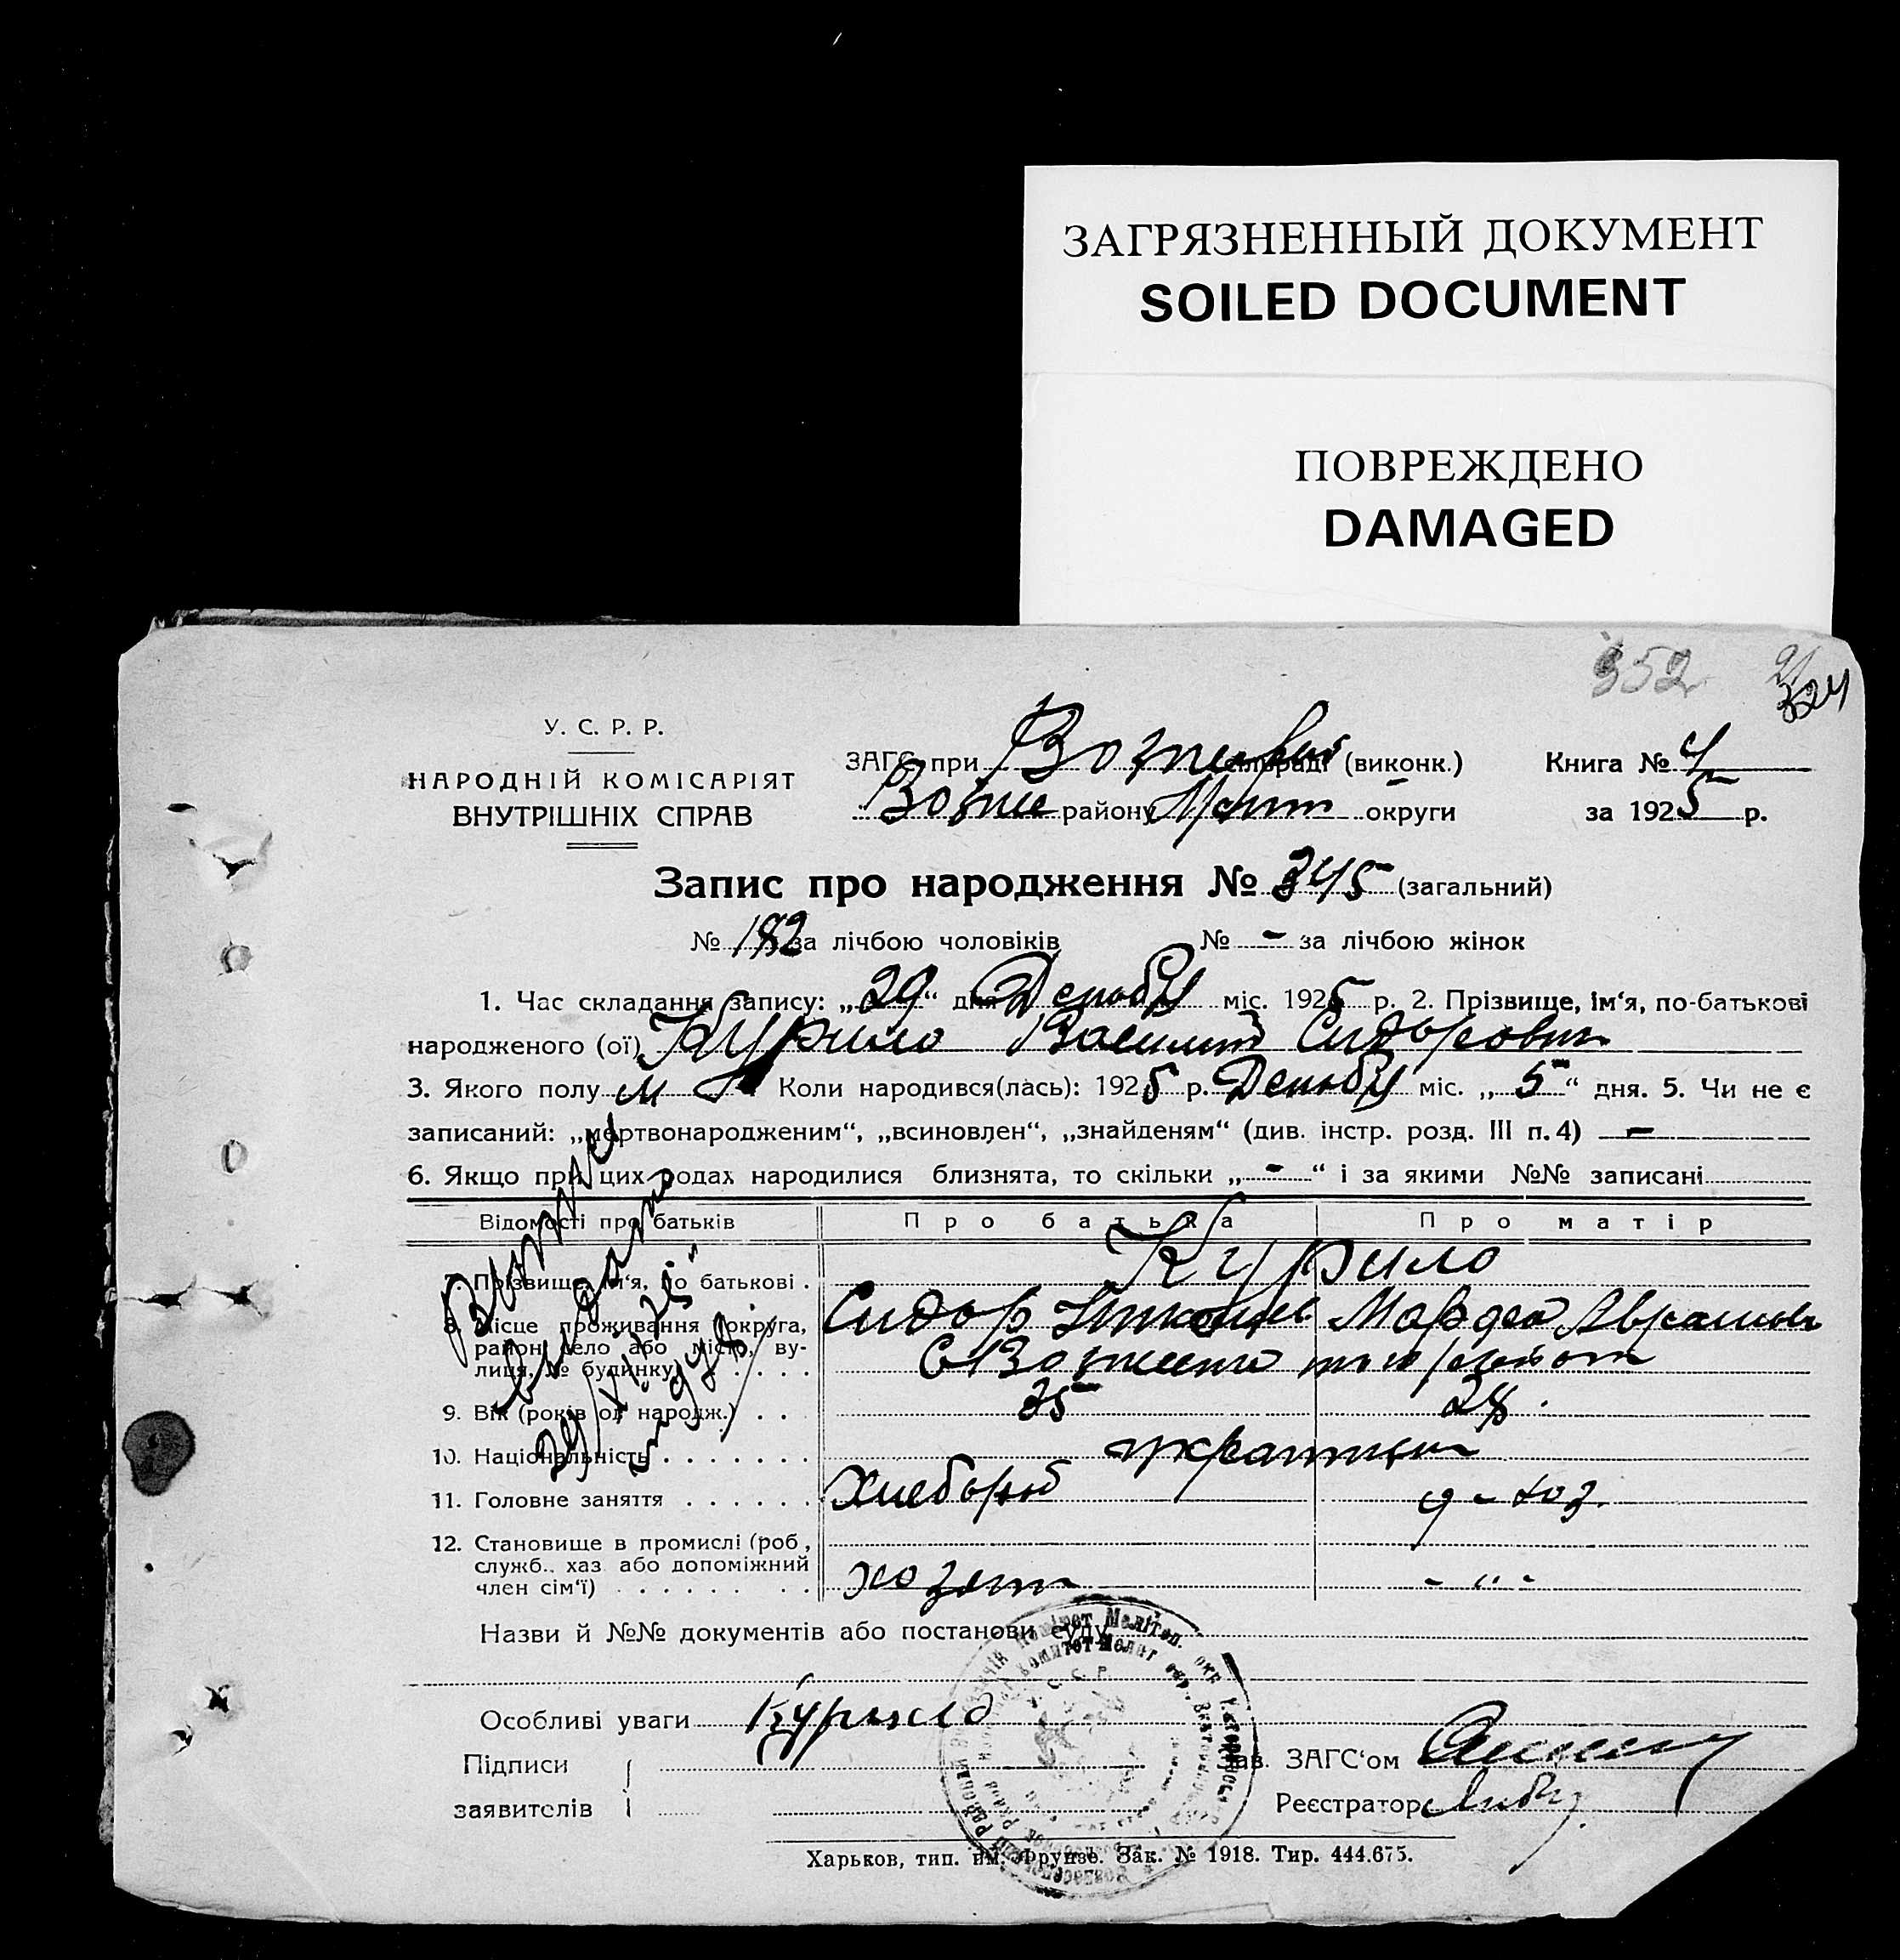 ЗАГРЯЗНЕННЫЙ ДОКУМЕНТ
SOILED DOCUMENT
ПОВРЕЖДЕНО
DAMAGED
352
324
У. С. Р. Р.
НАРОДНІЙ КОМІСАРІЯТ
ВНУТРІШНІХ СПРАВ
ЗАГС при сільраді (виконк.)
району Меліт округи
Книга № 4
за 1925 р.
Запис про народження № 345 (загальний)
№ 182 за лічбою чоловіків № - за лічбою жінок
1. Час складання запису: „29“ дня Декабря міс. 1925 р. 2. Прізвище, ім‘я, по-батькові
народженого (ої) Курило Василий Сидорович
3. Якого полу м Коли народився(лась): 1925 р. Декабря міс. „5“ дня. 5. Чи не є
записаний: „мертвонародженим“, „всиновлен“, „знайденям“ (див. інстр. розд. III п. 4) —
6. Якщо при цих родах народилися близнята, то скільки „-“ і за якими №№ записані
Відомості про батьків Про батька Про матір
7. Прізвище, ім‘я, по батькові . Курило
Сидор Марфа
8. Місце проживання (округа,
район, село або місто, ву-
лиця, № будинку) . . . . .
9. Вік (років од народж.) . . 35 28
10. Національність . . . . . . .
11. Головне заняття . . . . . . Хлебороб д-хоз.
12. Становище в промислі (роб.,
служб., хаз. або допоміжний
член сім‘ї) . . . . . . . хозяин - „ -
Назви й №№ документів або постанови суду
Особливі уваги Курило
Підписи
заявителів
Зав. ЗАГС‘ом
Реєстратор
Харьков, тип. им. Фрунзе. Зак. № 1918. Тир. 444.675.